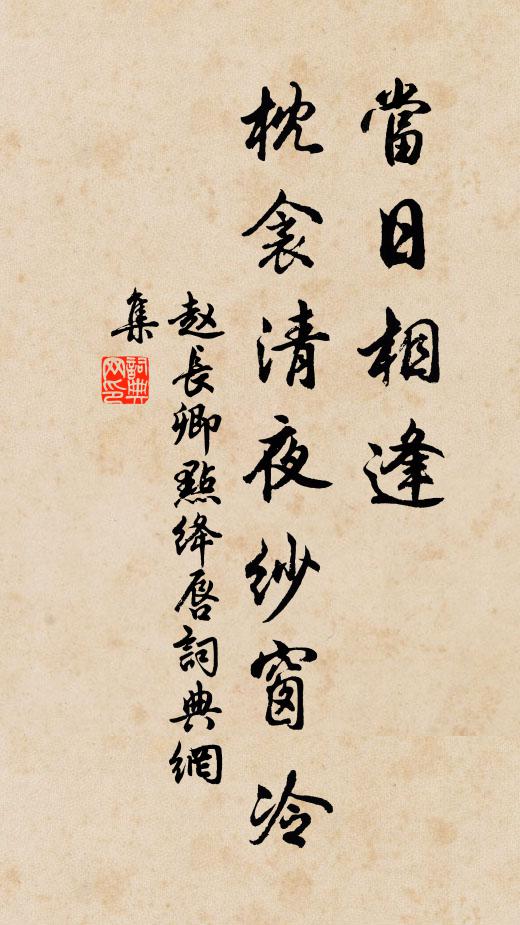 當日相逢
枕衾清夜紗窗冷
赵長卿點絳唇詞典網
集
詞典
网印